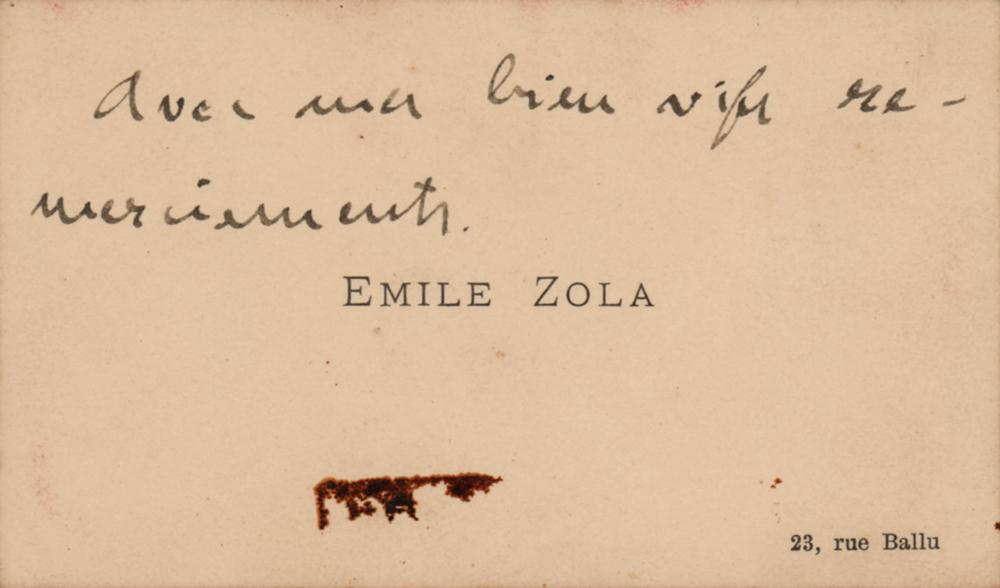 Avec mes bien vifs re-
merciements.
EMILE ZOLA
23, rue Ballu